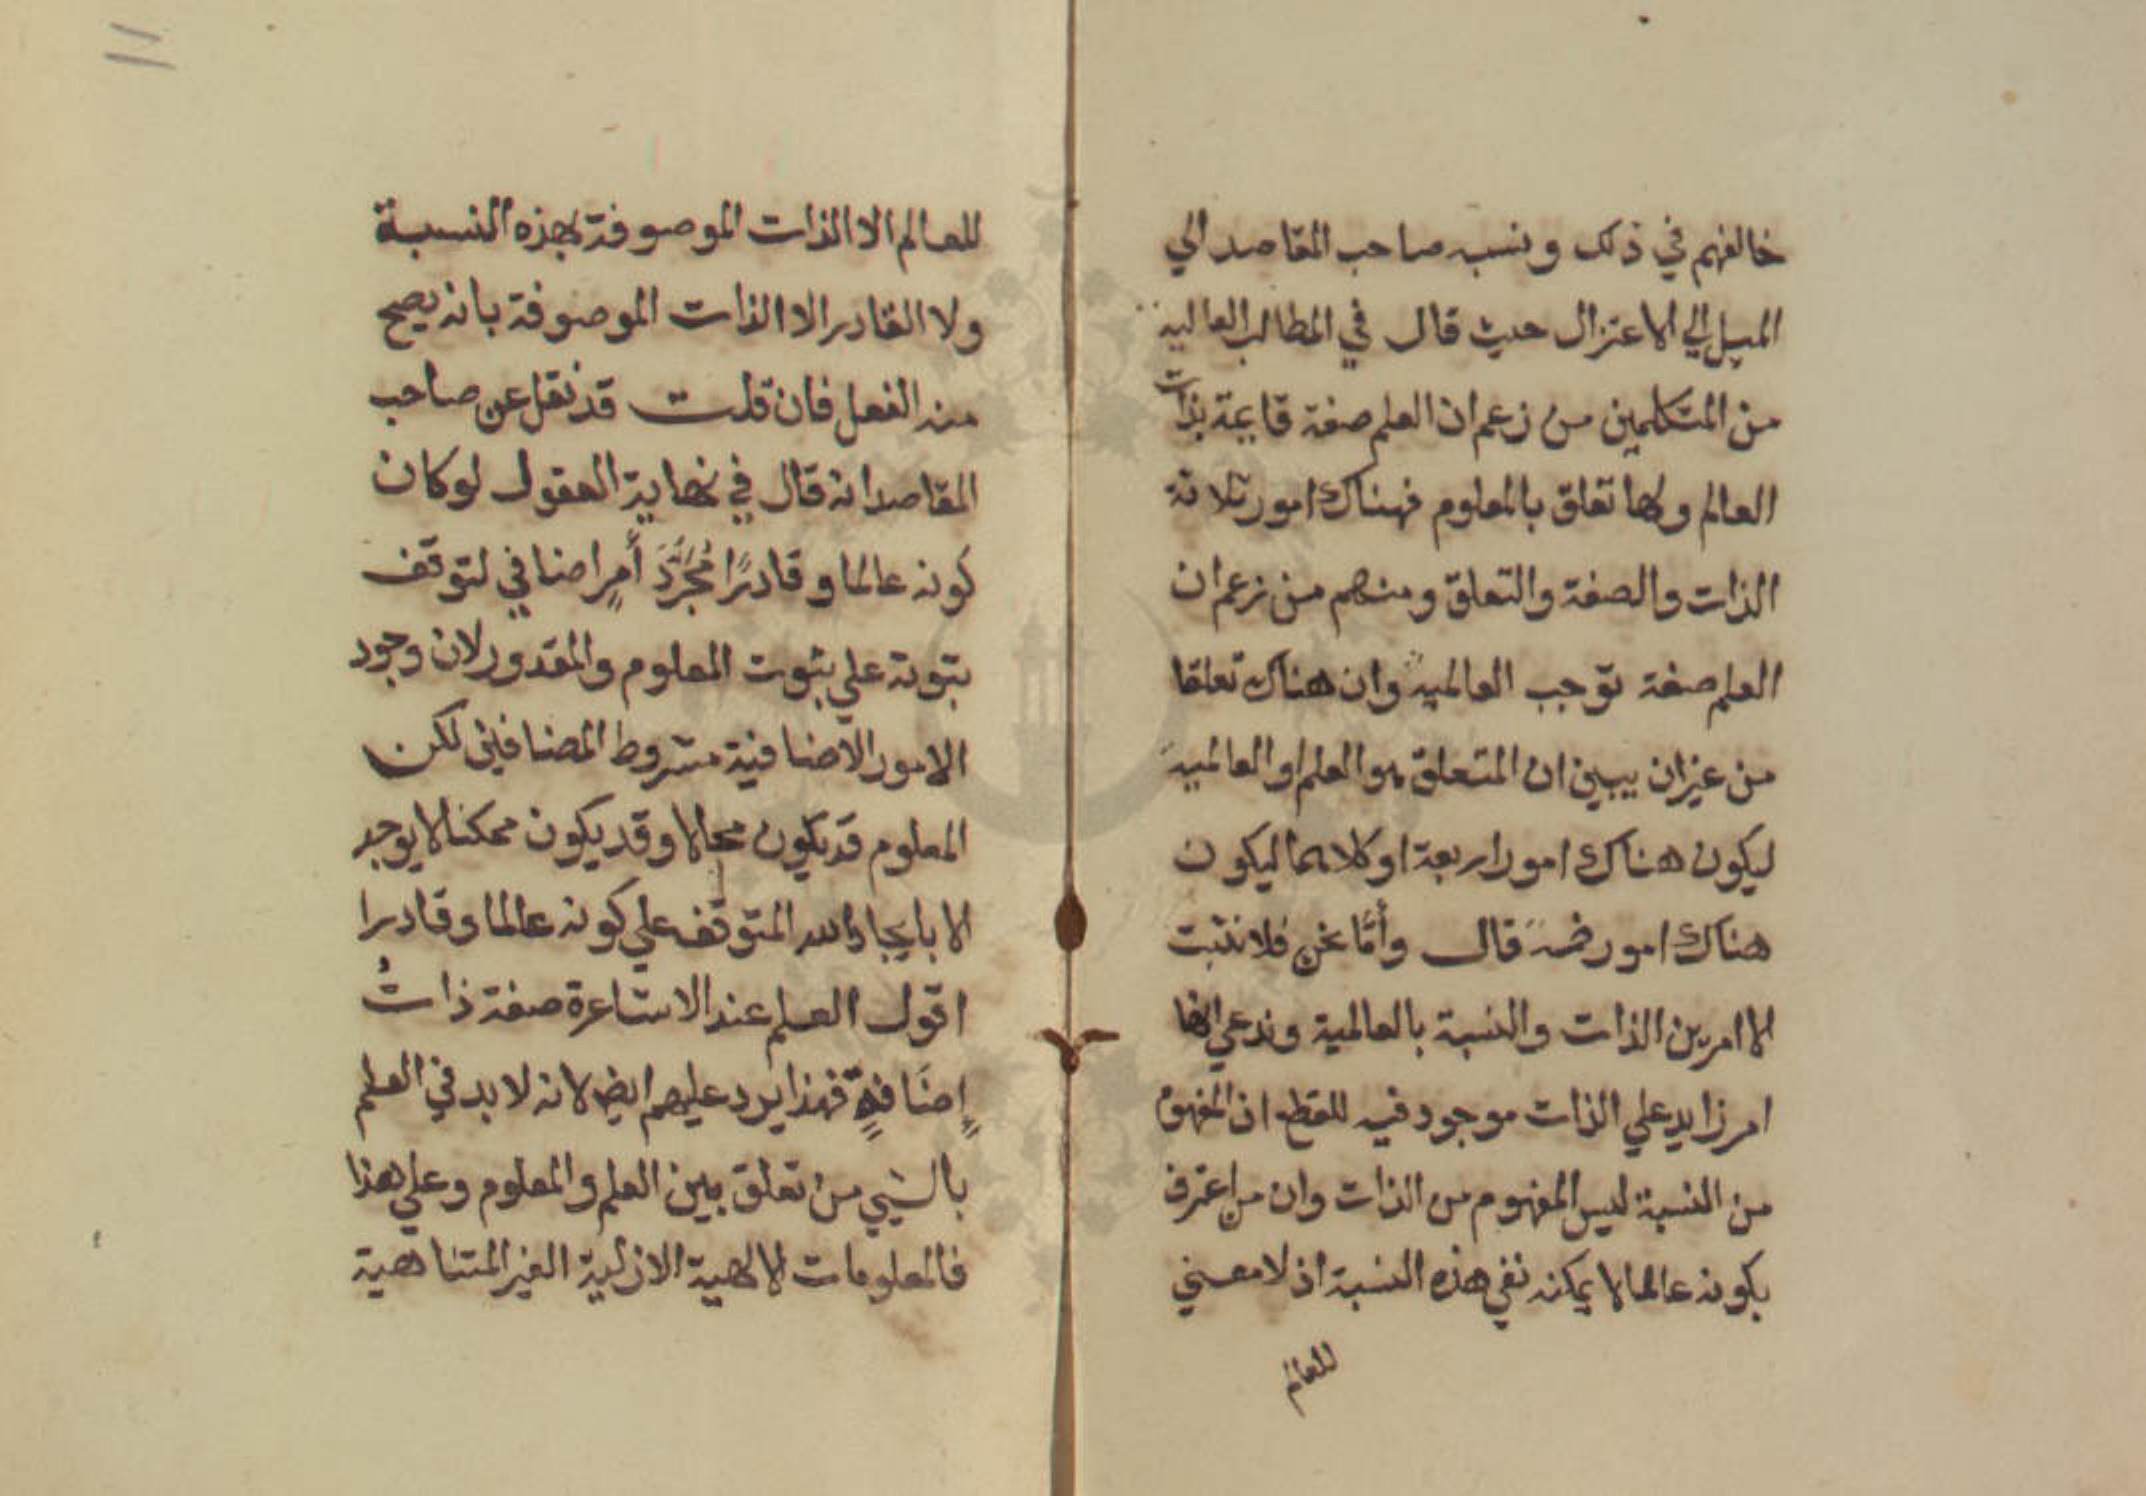 خالفهم في ذلك ونسبه صاحب المقاصد الي
الميل الي الاعتزال حيث قال في المطالب العالية
من المتكلمين من زعم ان العلم صفة قايمة بذات
العالم ولها تعلق بالمعلوم فهناك امور ثلاثة
الذات والصفة والتعلق ومنهم من زعم ان
العلم صفة توجب العالمية وان هناك تعلقا
من غير ان يبين ان المتعلق هو العلم او العالمية
ليكون هناك امورا ربعة او كلاهما ليكون
هناك امور خمسة قال وأمّا نحن فلا نثبت
الا امرين الذات والنسبة بالعالمية وندعي انها
امر زايد علي الذات موجود فيه للقطع ان المفهوم
من النسبة ليس المفهوم من الذات وان من اعترف
بكونه عالما لا يمكنه نفي هذه النسبة اذ لا معني
للعالم
للعالم الا الذات الموصوفة بهذه النسبة
ولا القادر الا الذات الموصوفة بانه يصح
منه الفعل فان قلت قد نقل عن صاحب
المقاصد انه قال في نهاية العقول لو كان
كونه عالما وقادرًا مُجَرَّدَ أمرٍ اضافي لتوقف
ثبوته علي ثبوت المعلوم والمقدور لان وجود
الامور الاضافية مشروط المضافين لكن
المعلوم قد يكون محالا وقد يكون ممكنا لا يوجد
الا بايجاد الله المتوقف علي كونه عالما وقادرا
اقول العلم عند الاشاعرة صفة ذاتُ
إضَافةٍ فهذا يرد عليهم ايضا لانه لا بد في العلم
بالشيي من تعلق بين العلم والمعلوم وعلي هذا
فالمعلومات الالهية الازلية الغير المتناهية